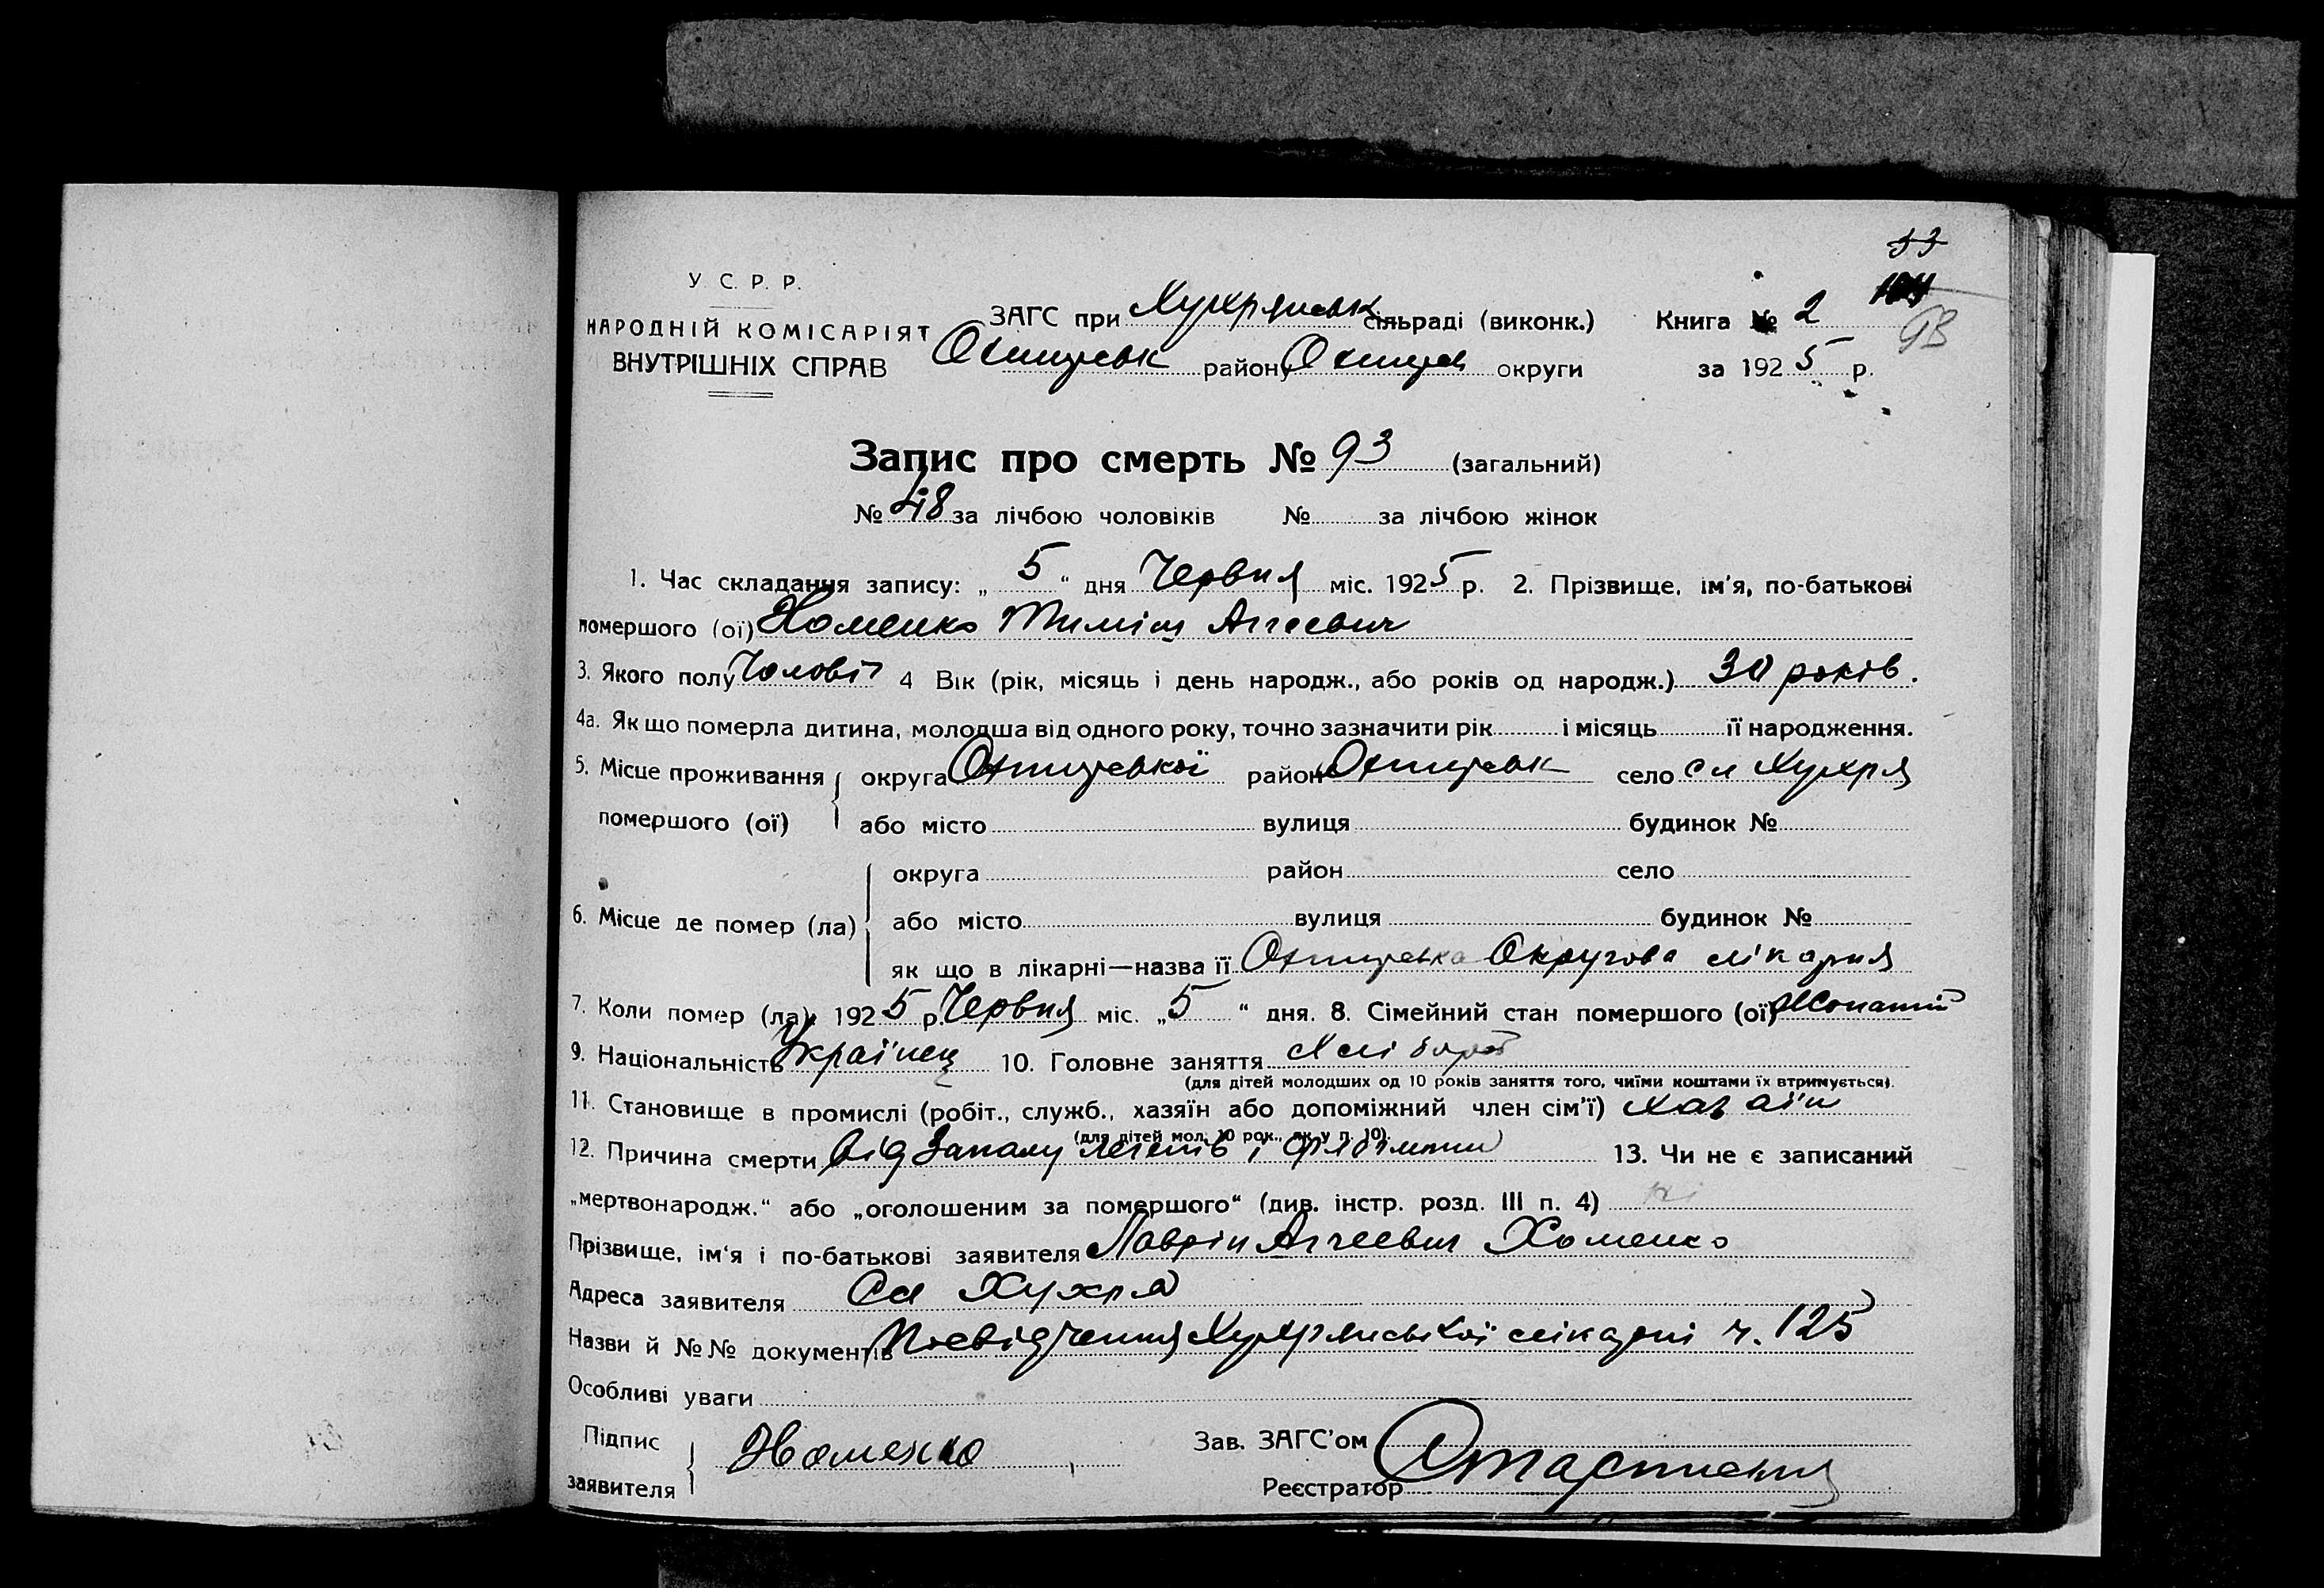 33
У. С. Р. Р.
НАРОДНІЙ КОМІСАРІЯТ
ВНУТРІШНІХ СПРАВ
ЗАГС при Хухрянськ сільраді (виконк.) Книга № 2
Охтирськ району Охтирськ округи за 1925 р.
93
Запис про смерть № 93 (загальний)
№ 48 за лічбою чоловіків № за лічбою жінок
1. Час складання запису: „ 5 “ дня Червня міс. 1925 р. 2. Прізвище, ім'я, по-батькові
помершого (ої) Хоменко Тиміш Аггеевич
3. Якого полу Чолові 4 Вік (рік, місяць і день народж., або років од народж.) 30 років.
4а. Як що померла дитина, молодша від одного року, точно зазначити рік і місяць її народження.
5. Місце проживання округа Охтирської район Охтирськ село сл Хухря
помершого (ої) або місто вулиця будинок №
округа район село
6. Місце де помер (ла) або місто вулиця будинок №
як що в лікарні—назва її Охтирська Округова лікарня
7. Коли помер (ла) 1925 р. Червня міс. „5 “ дня. 8. Сімейний стан помершого (ої) Жонатий
9. Національність Українец 10. Головне заняття Хлібороб
(для дітей молодших од 10 років заняття того, чиїми коштами їх втримується).
11. Становище в промислі (робіт., служб., хазяїн або допоміжний член сім'ї) хазаїн
(для дітей мол. 10 рок., як у п. 10).
12. Причина смерти від Запалу легенів і 13. Чи не є записаний
„мертвонародж.“ або „оголошеним за помершого“ (див. інстр. розд. III п. 4) ні
Прізвище, ім'я і по-батькові заявителя Лаврін Аггеевич Хоменко
Адреса заявителя Сл Хухря
Назви й №№ документів Посвідчення Хухрянської лікарні ч. 125
Особливі уваги
Підпис заявителя Хоменко
Зав. ЗАГС'ом
Реєстратор